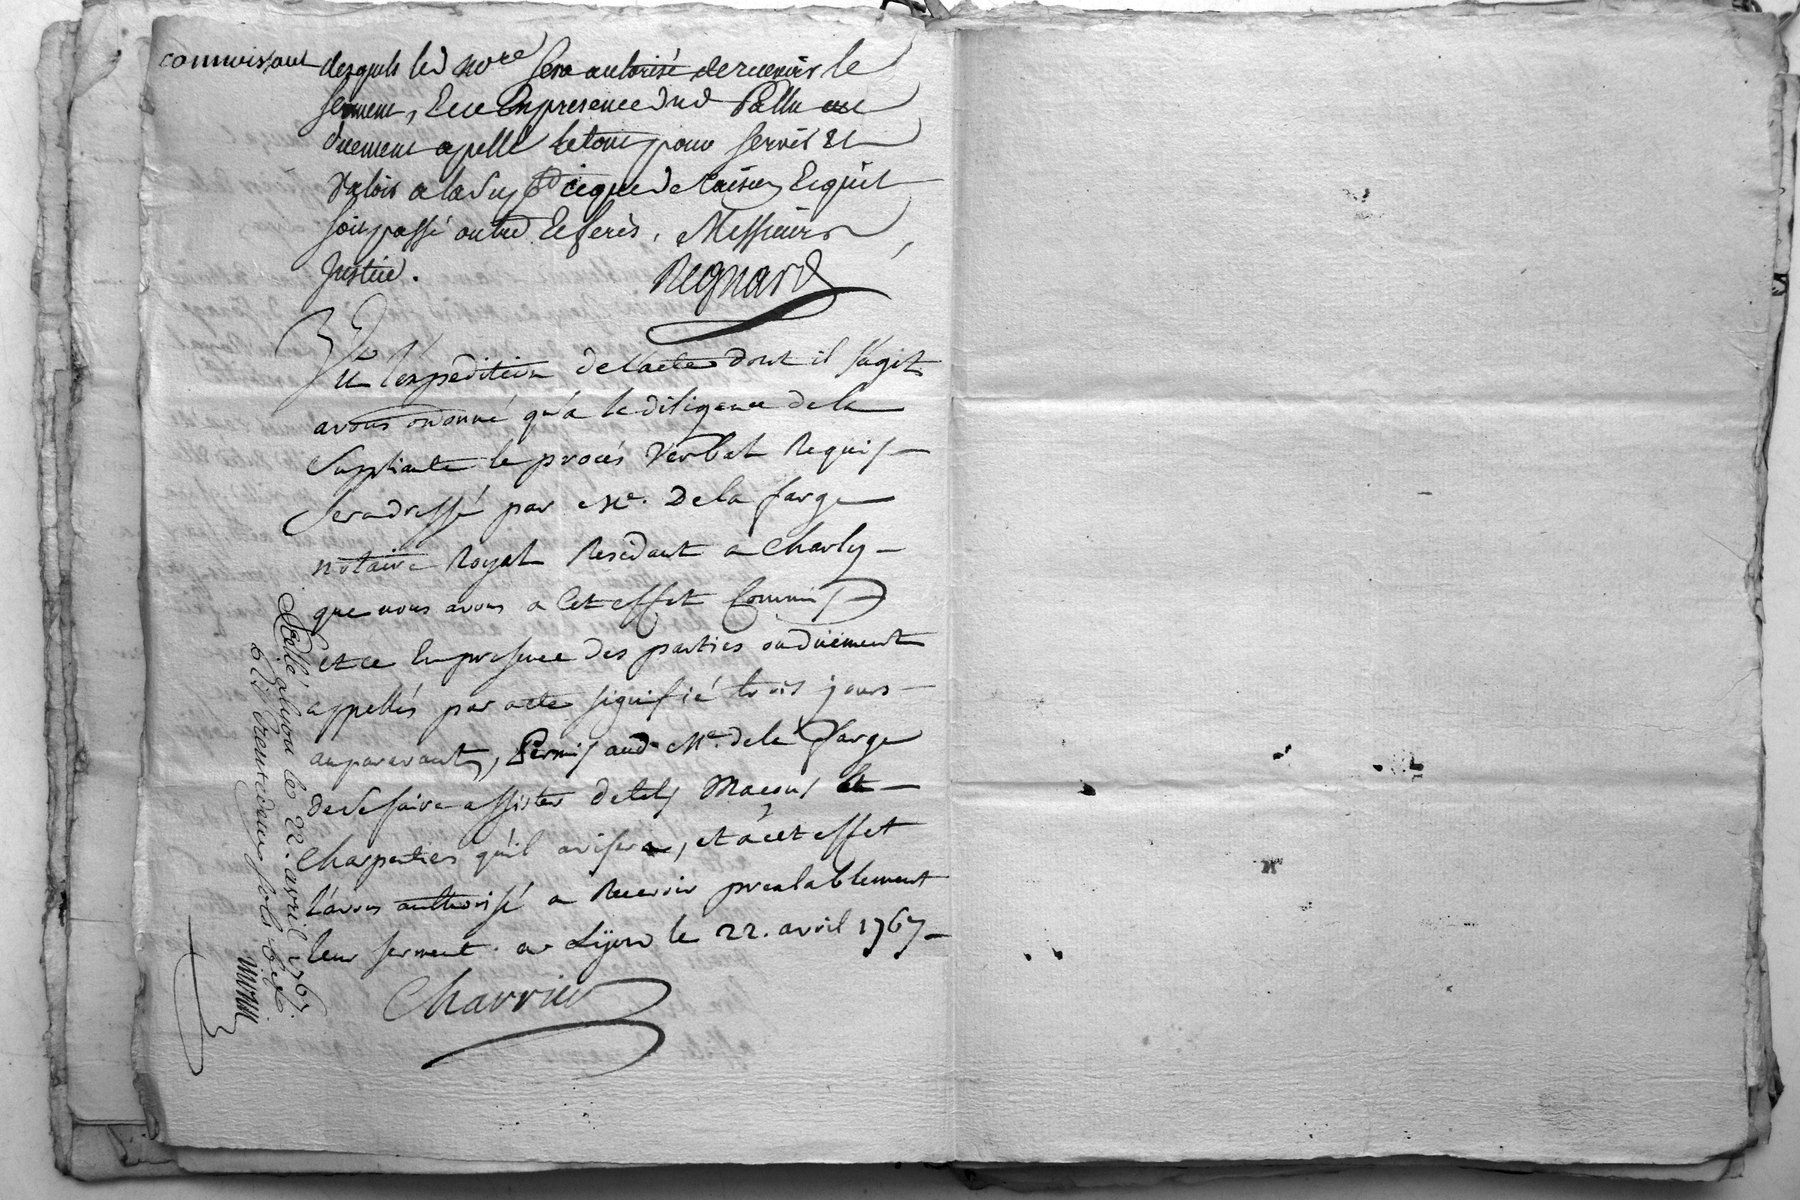 connoissant desquels led nore sera autorisé de recevoir le
serment, Et ce En presence dud Pallu ou
duement apellé le tout pour servir Et
valoir a lad supte ce que de raison Et quil
soit passé outre Et ferés, Messieurs
Justice.
Regnard
Vu l'expedition de l'acte dont il s'agit
avons ordonné qu'a la diligence de la
Suppliante le procés Verbal Requis
Sera dressé par Me. De la farge
notaire Royal Residant a Charly
que nous avons a Cet effet Commis
et ce En presence des parties ou duëment
appellés par acte signifié trois jours
auparavant, Permis aud. Me. de la farge
de se faire assister de tels Macons et
Charpentiers qu'il avisera, et a cet effet
l'avons authorisé a Recevoir prealablement
leur serment. a Lÿon le 22. avril 1767
Charrier
Scellé a Lyon le 22. avril 1767.
trente deux sols